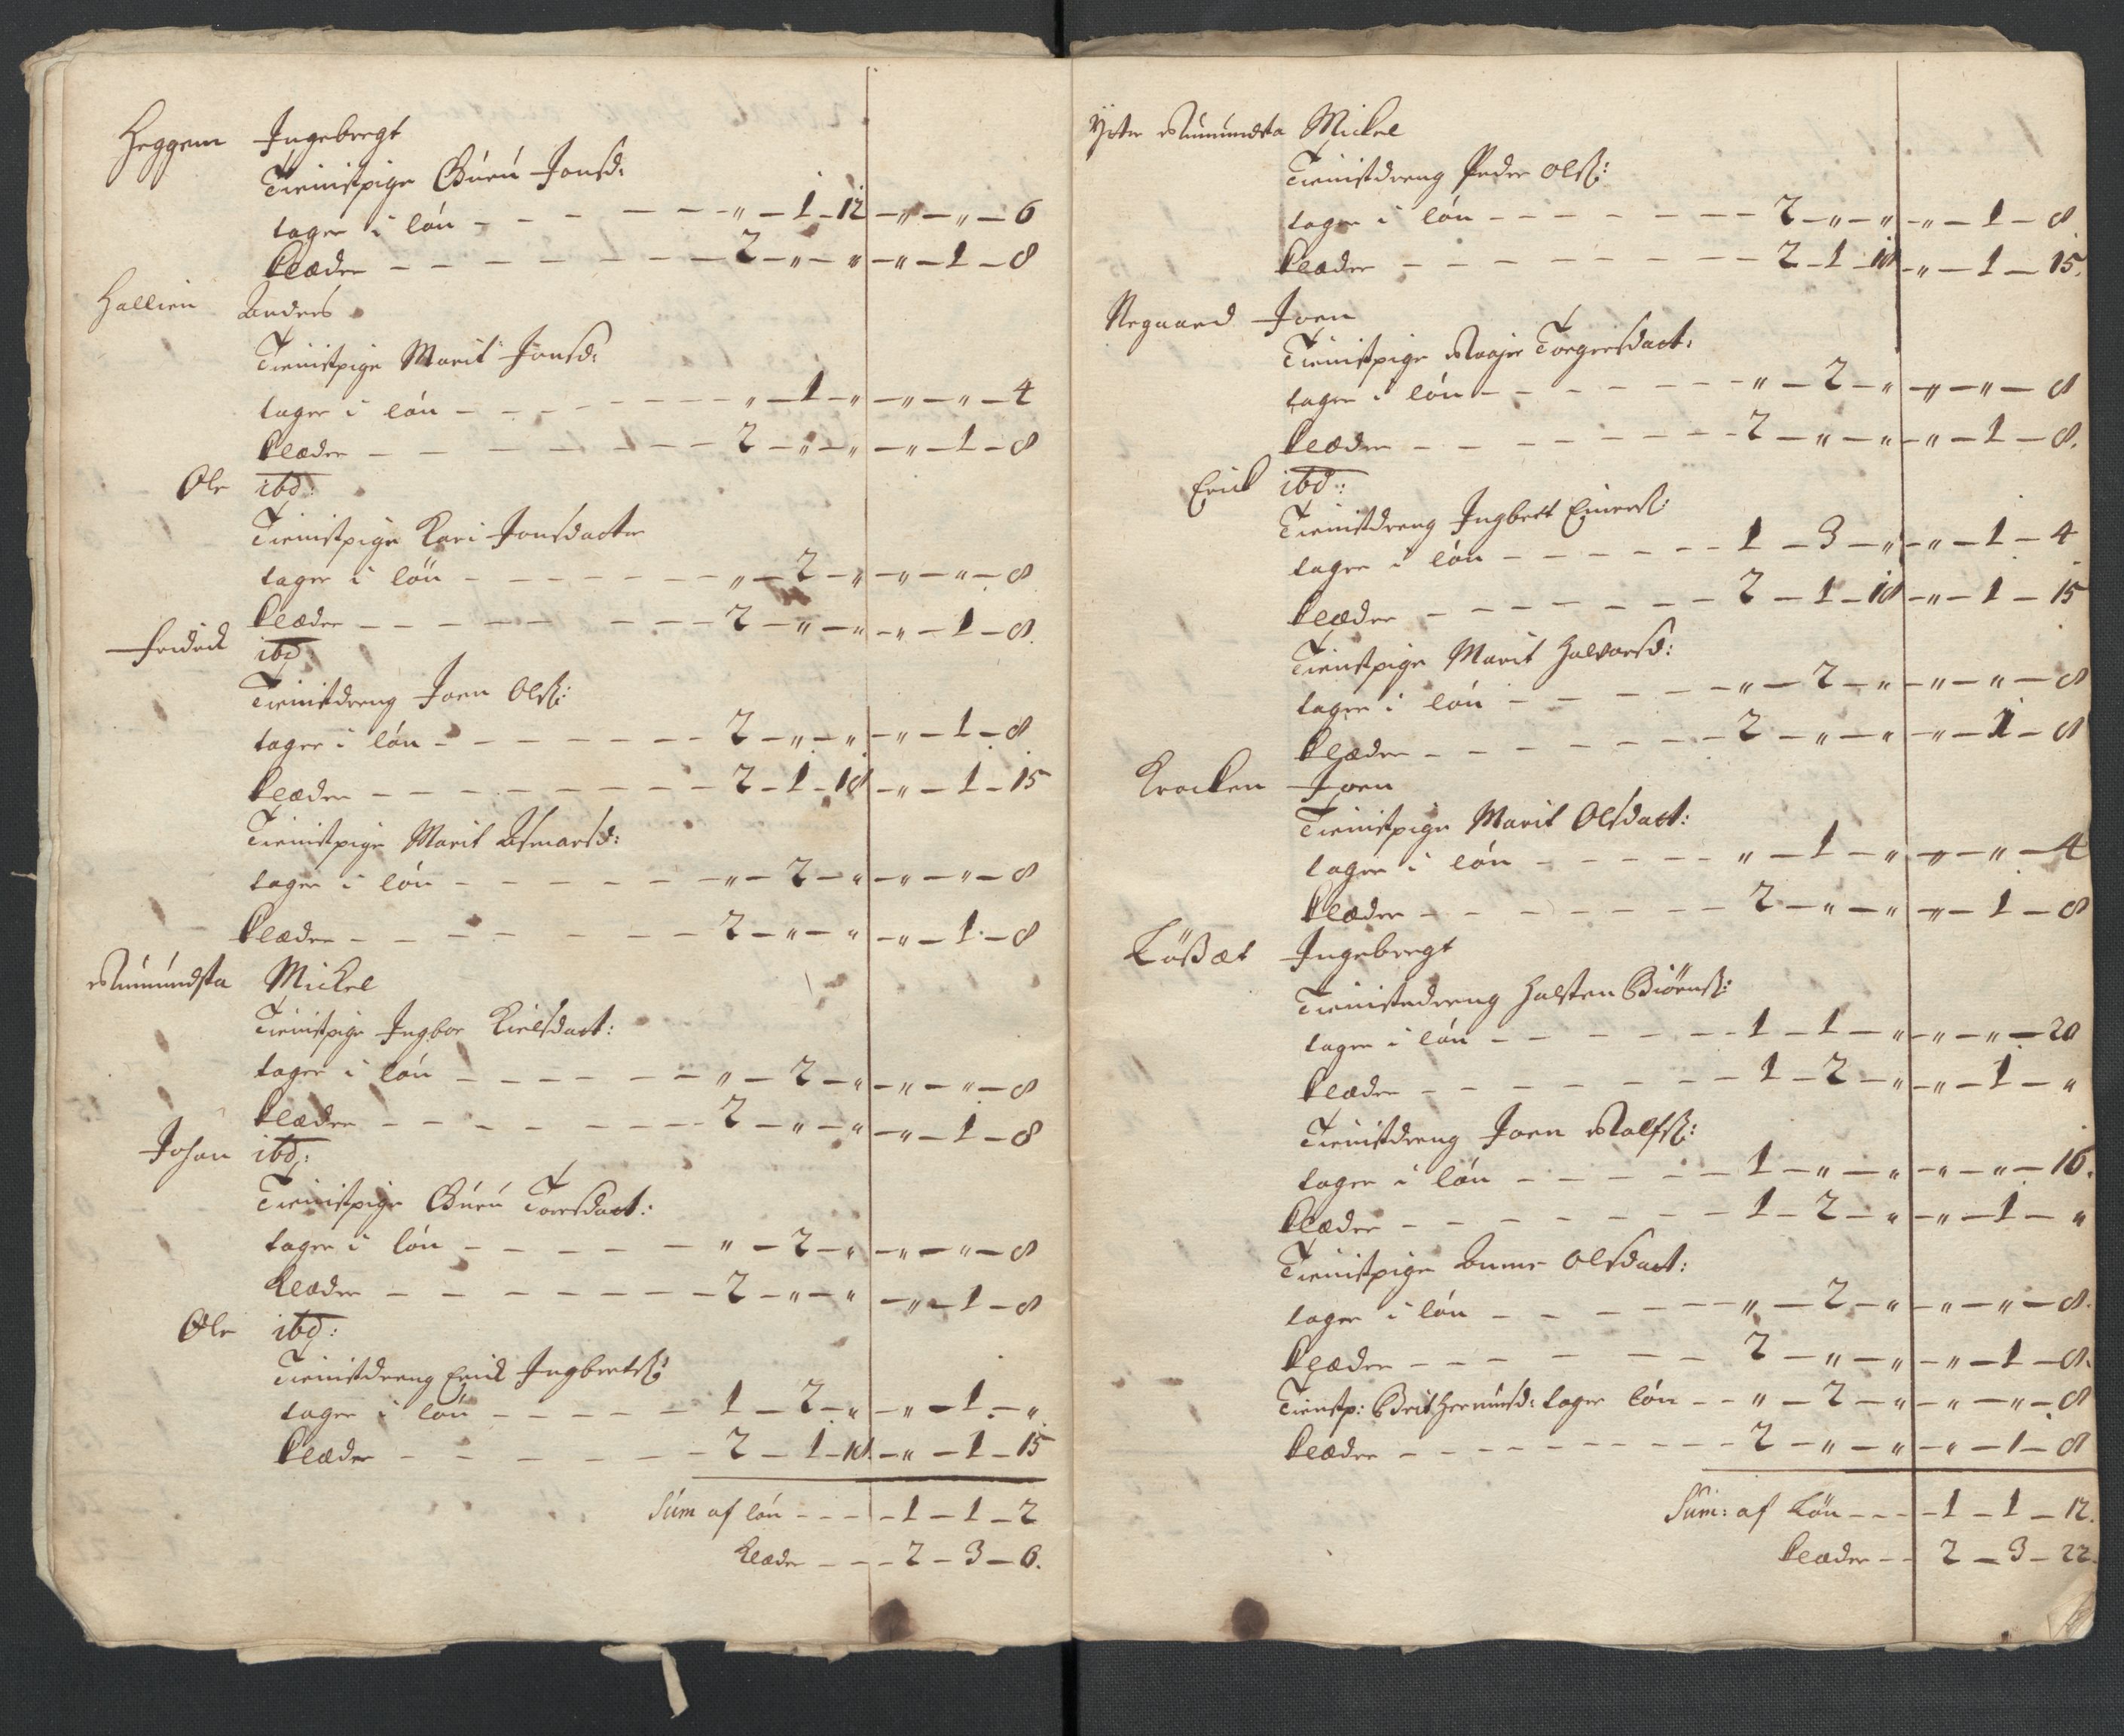 Heggem Ingebregt
Tienistpige Guru Jonsd:
tager i lön - - - " - 1 - 12 - " - " - 6
klæder - - - 2 - " - " - " - 1 - 8
Hallien Anders
Tienistpige Marit Jonsd:
tager i lön - - - " - 1 - " - " - " - 4
klæder - - - 2 - " - " - " - 1 - 8
Ole ibd:
Tienistpige Kari Jonsdatter
tager i lön - - - " - 2 - " - " - " - 8
klæder - - - 2 - " - " - " - 1 - 8.
Fridrick ibd:
Tienistdreng Joen Olss:
tager i lön - - - 2 - " - " - " - 1 - 8
klæder - - - 2 - 1 - 18 - " - 1 - 15
Tienistpige Marit
tager i lön - - - " - 2 - " - " - " - 8
klæder - - - 2 - " - " - " - 1 - 8
Mickel
Tienistpige Ingbor Kielsdaat:
tager i lön - - - " - 2 - " - " - " - 8
klæder - - - 2 - " - " - " - 1 - 8
Johan ibd:
Tienistpige Guru Toersdaat:
tager i lön - - - " - 2 - " - " - " - 8
klæder - - - 2 - " - " - " - 1 - 8
Ole ibd:
Tienistdreng Erick Ingbretss:
tager i lön - - - 1 - 2 - " - " - 1 - "
klæder - - - 2 - 1 - 18 - " - 1 - 15
Sum af lön - - - 1 - 1 - 2
Klæder - - - 2 - 3 - 6.
Yter Mickel
Tienistdreng Peder Olss:
tager i lön - - - 2 - " - " - " - 1 - 8
klæder - - - 2 - 1 - 18 - " - 1 - 15.
Negaard Joen
Tienistpige Torgersdaat:
tager i lön - - - " - 2 - " - " - " - 8
klæder - - - 2 - " - " - " - 1 - 8.
Erick ibd:
Tienistdreng Ingbret Einerss:
tager i lön - - - 1 - 3 - " - " - 1 - 4
klæder - - - 2 - 1 - 18 - " - 1 - 15
Tienstpige Marit Halvorsd:
tager i lön - - - " - 2 - " - " - " - 8
klæder - - - 2 - " - " - " - 1 - 8
Krocken Joen
Tienistpige Marit Olsdaat:
tager i lön - - - " - 1 - " - " - " - 4
klæder - - - 2 - " - " - " - 1 - 8
Lößæt Ingebregt
Tienistedreng Halsten Biörnss:
tager i lön - - - 1 - 1 - " - " - " - 20
klæder - - - 1 - 2 - " - " - 1 - "
Tienistdreng Joen Rolfss:
tager i lön - - - 1 - " - " - " - " - 16.
klæder - - - 1 - 2 - " - " - 1 - "
Tienistpige Anne Olsdaat:
tager i lön - - - " - 2 - " - " - " - 8.
klæder - - - 2 - " - " - " - 1 - 8.
Tienstp: Brit tager lön - - " - 2 - " - " - " - 8
klæder - - - 2 - " - " - " - 1 - 8
Sum: af Lön - - - 1 - 1 - 12.
klæder - - 2 - 3 - 22.